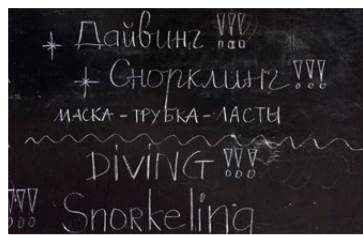 * Дайвинг !!!
* Снорклинг !!!
МАСКА - ТРУБКА - ЛАСТЫ
DIVING !!!
!!! Snorkeling